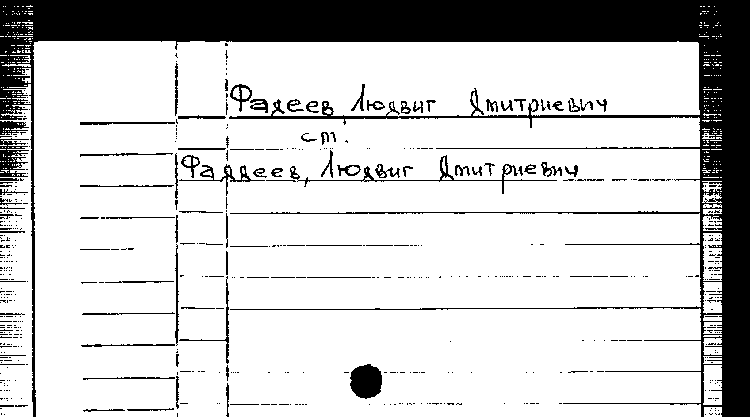 Фадеев, Людвиг Дмитриевич
ст.
Фаддеев, Людвиг Дмитриевич